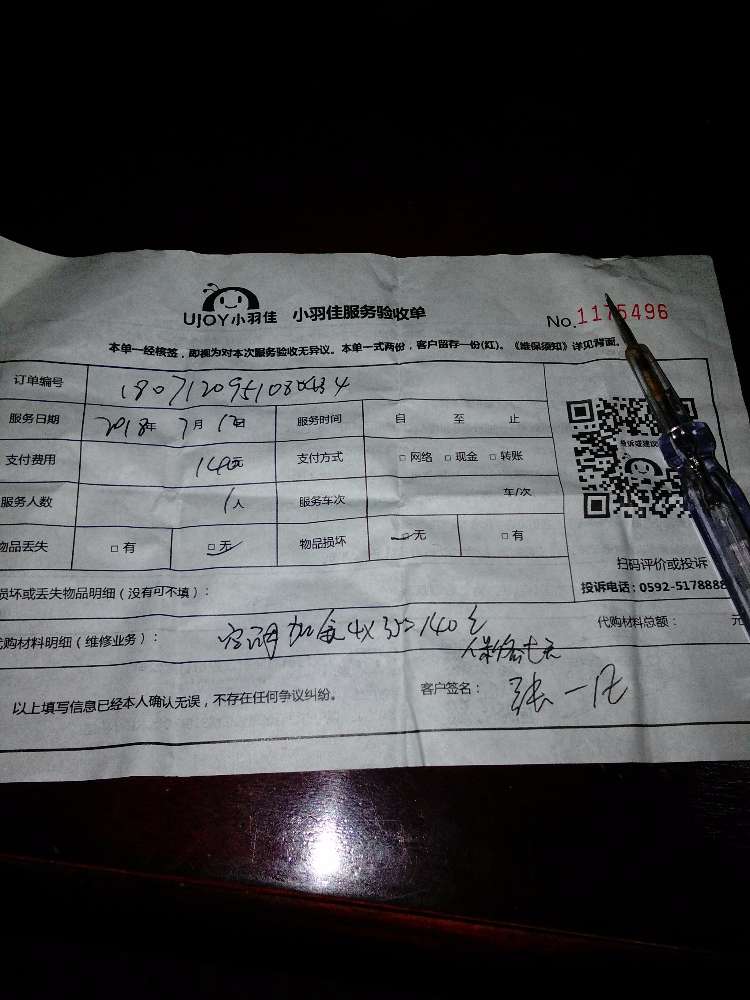 UJOY小羽佳 小羽佳服务验收单
No. 1175496
本单一经核签，即视为对本次服务验收无异议。本单一式两份，客户留存一份(红)。《维保须知》详见背面。
订单编号
服务日期 2018年 7月 12日 服务时间 自 至 止
支付费用 140元 支付方式 □ 网络 □ 现金 □ 转账
服务人数 1人 服务车次 车/次
物品丢失 □ 有 □ 无 物品损坏 □ 无 □ 有
投诉或建议
扫码评价或投诉
投诉电话：0592-5178888
损坏或丢失物品明细（没有可不填）：
代购材料明细（维修业务）： 空调加氟4X35=140元 代购材料总额： 元
以上填写信息已经本人确认无误，不存在任何争议纠纷。 客户签名： 张一